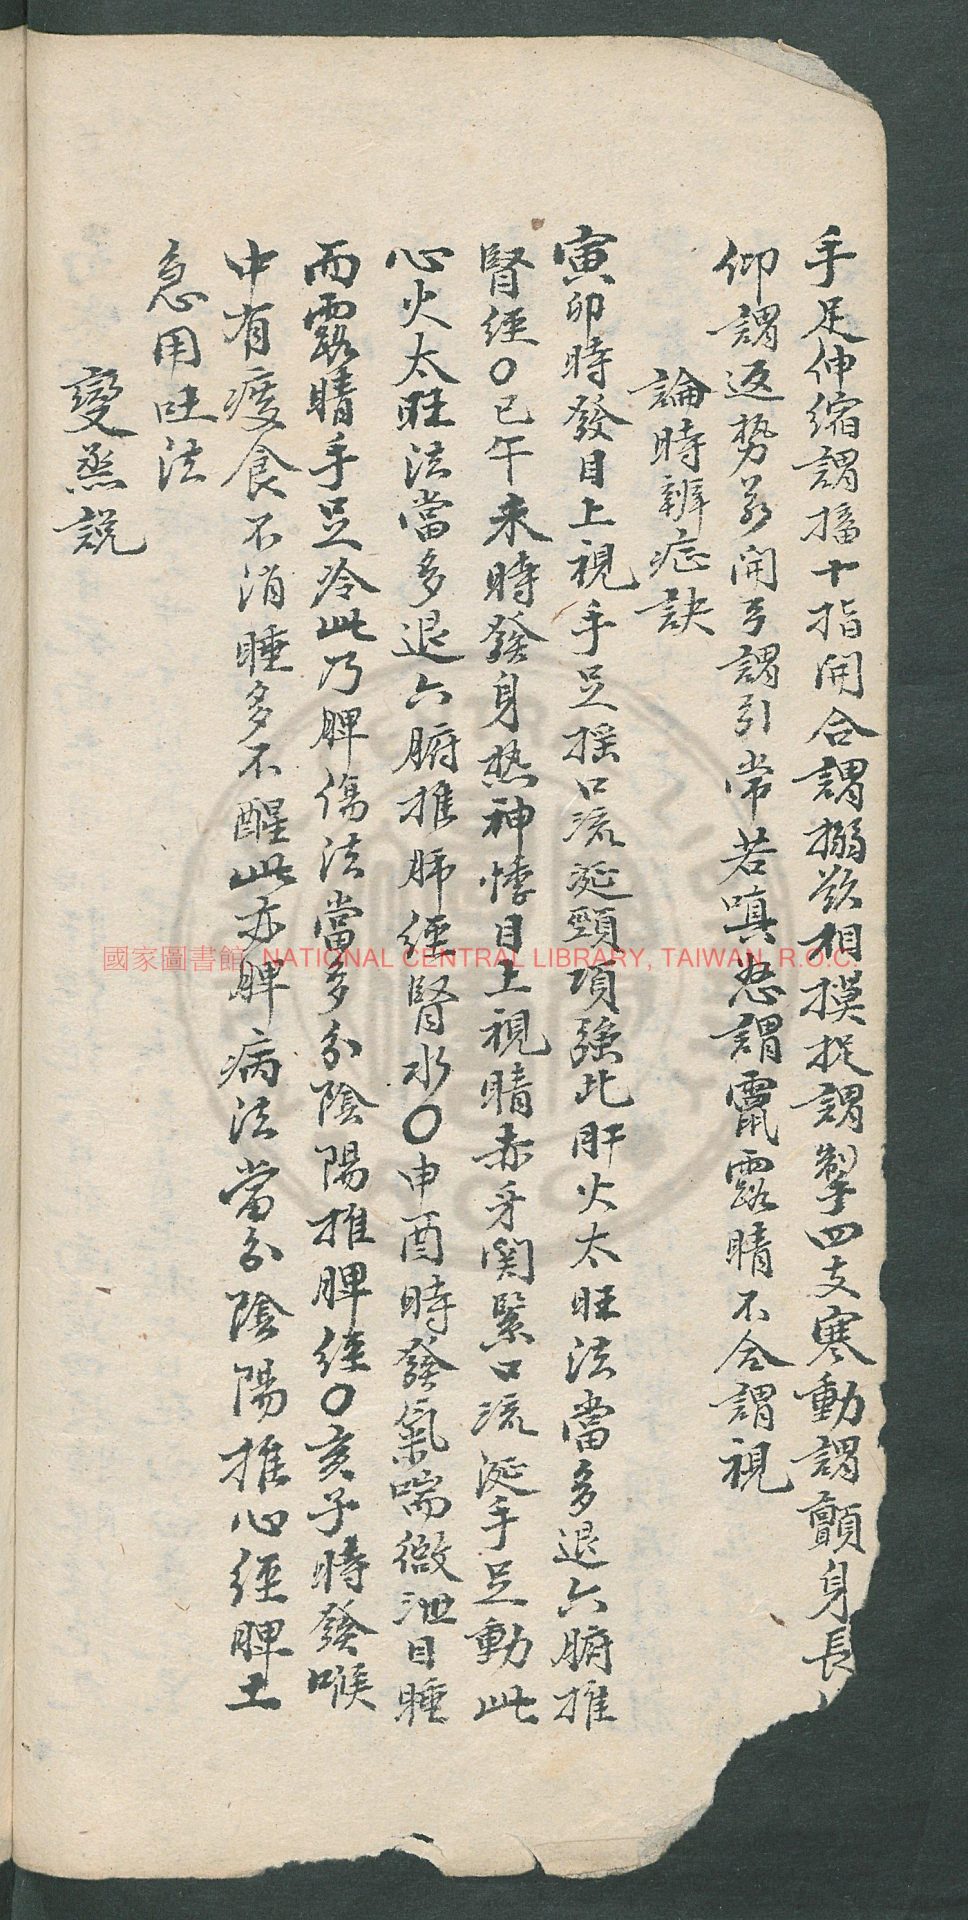 手足伸縮謂搐十指開合謂搦勢相摸捉謂掣四支寒動謂顫身長
仰謂返勢若開弓謂引常若嗔怒謂竄露睛不合謂視
論時辨症訣
寅卯時發目上視手足搖口流涎頸項強此肝火太旺法當多退六腑推
腎經〇已午未時發身熱神悸目上視睛赤牙関緊口流涎手足動此
心火太旺法當多退六腑推肺經腎水〇申酉時發氣喘微泄目睡
而露睛手足冷此乃脾傷法當多分陰陽推脾經〇亥子時發喉
中有痰食不消睡多不醒此亦脾病法當分陰陽推心經脾土
急用吐法
變蒸説
國家圖書館 NATIONAL CENTRAL LIBRARY, TAIWAN, R.O.C.